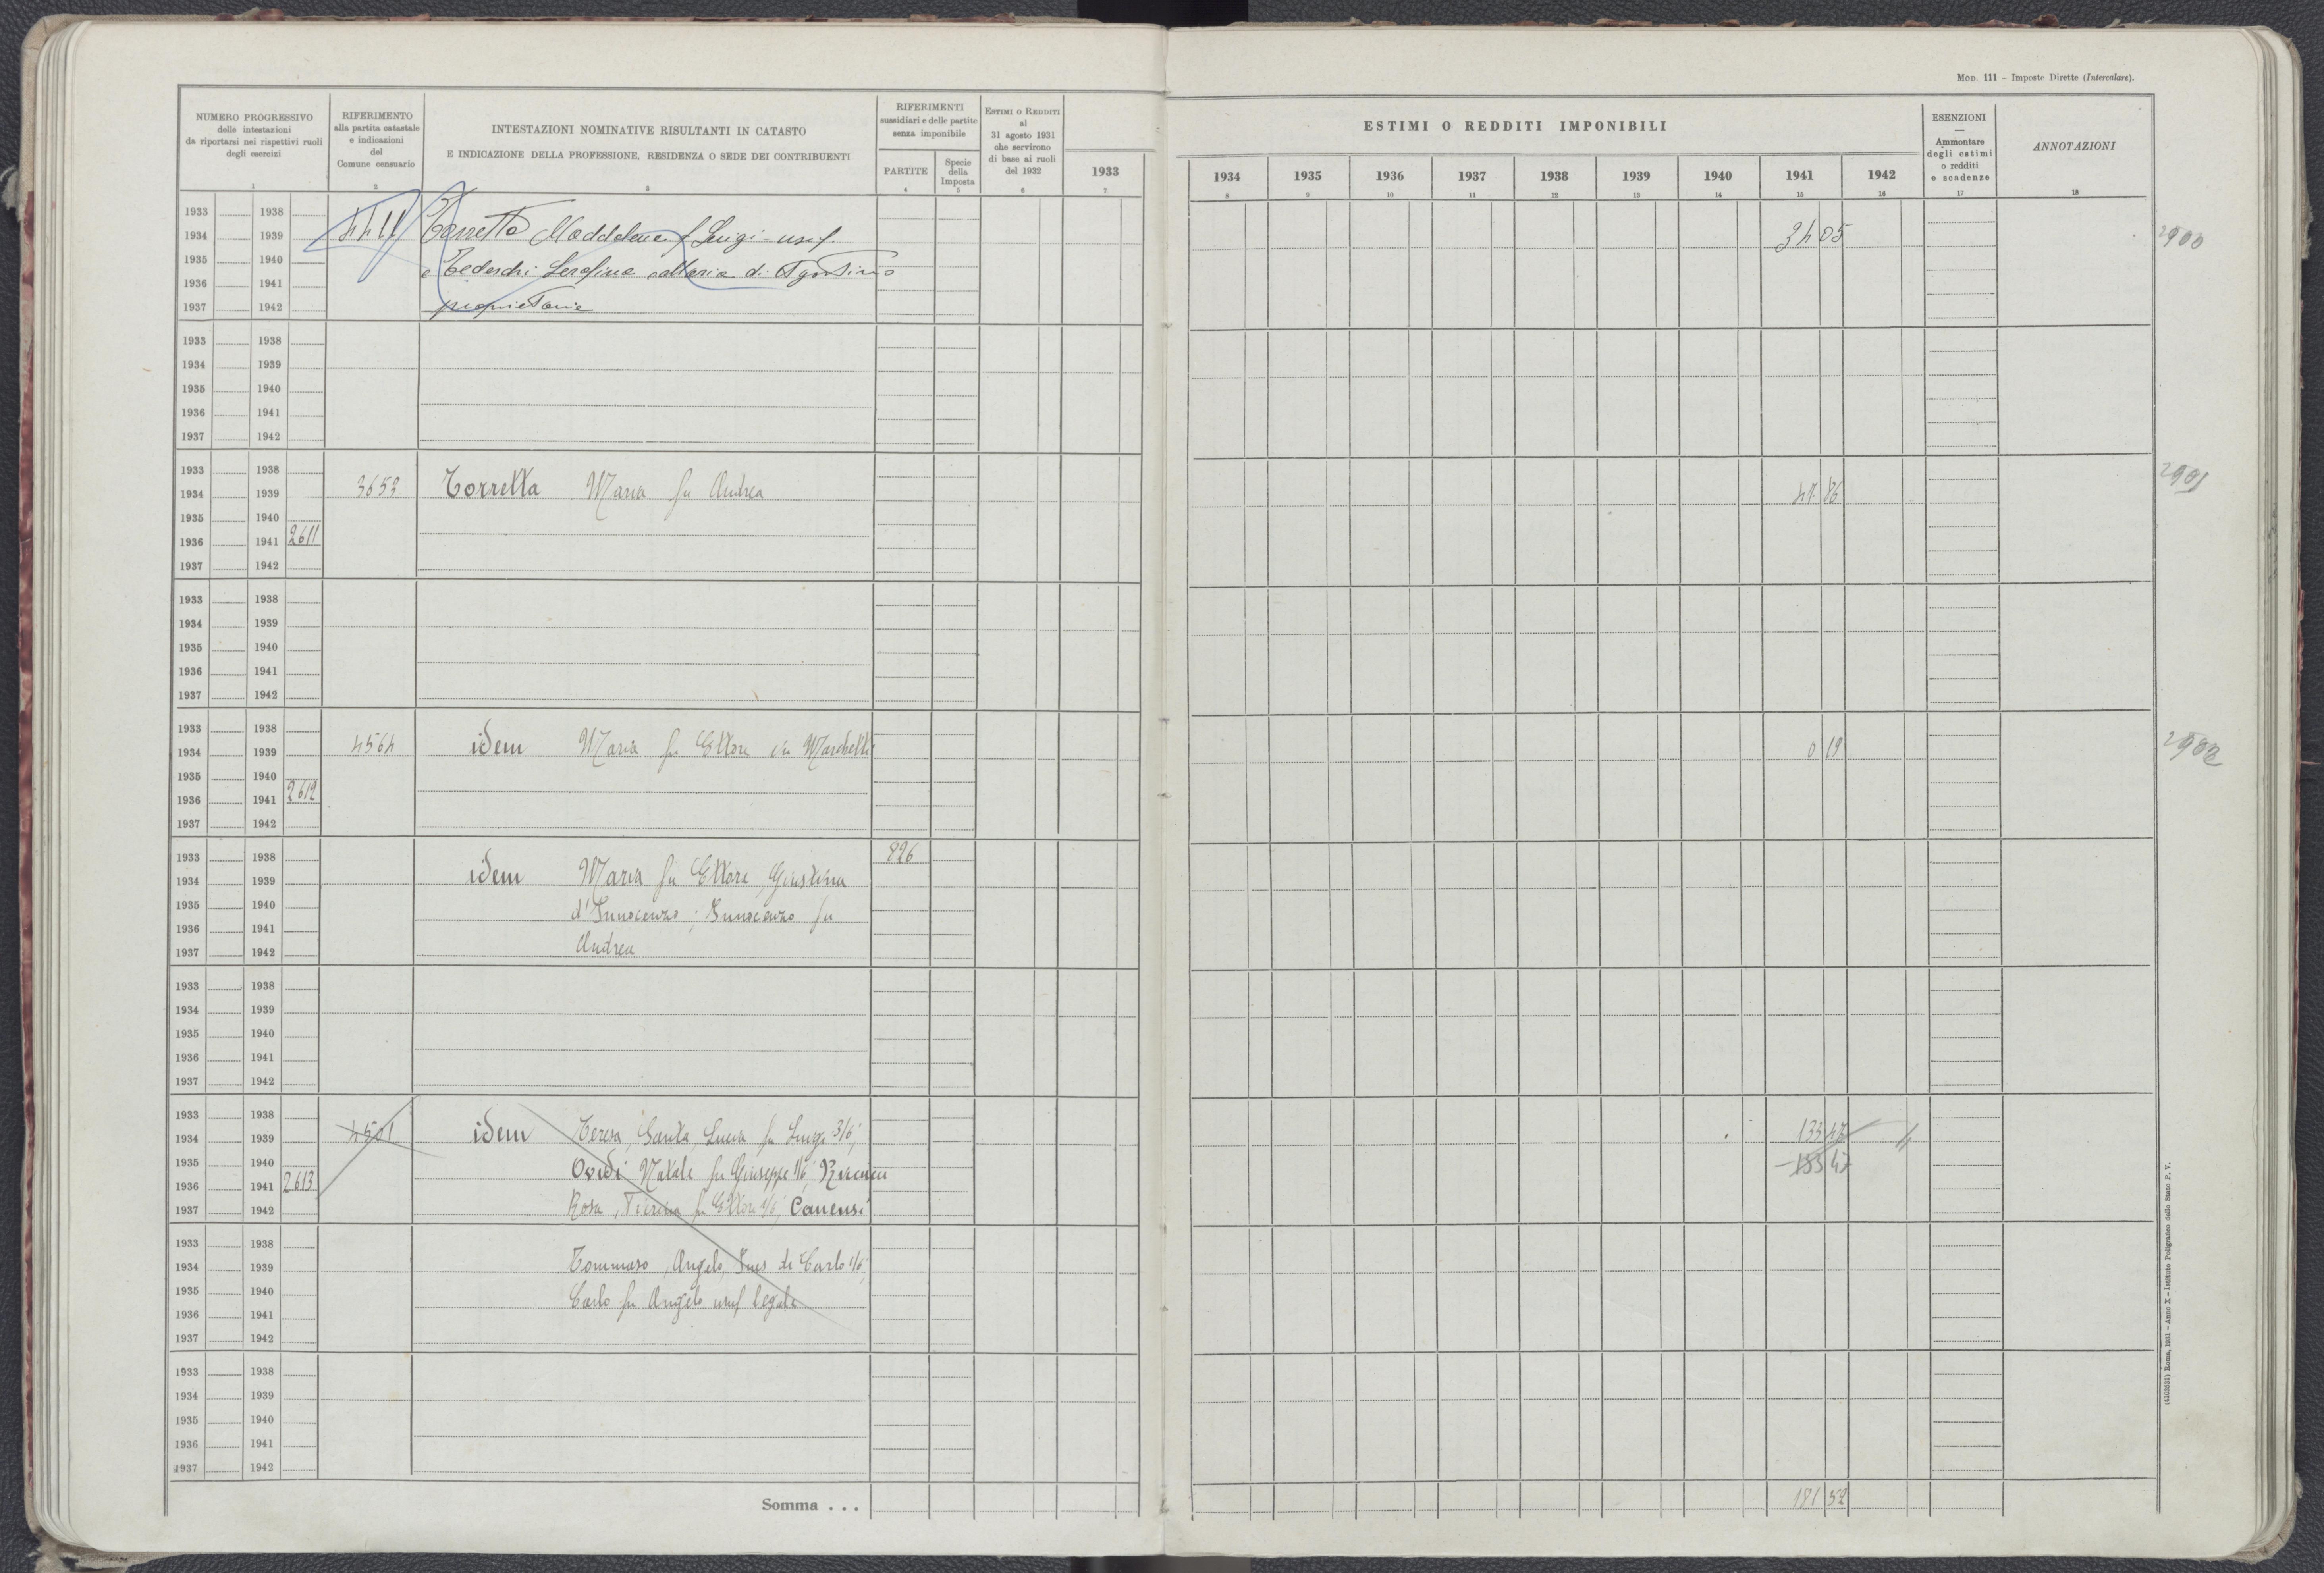 Mod. 111 - Imposte Dirette (Intercalare).
NUMERO PROGRESSIVO
delle intestazioni
da riportarsi nei rispettivi ruoli
degli esercizi
1
RIFERIMENTO
alla partita catastale
e indicazioni
del
Comune censuario
2
INTESTAZIONI NOMINATIVE RISULTANTI IN CATASTO
E INDICAZIONE DELLA PROFESSIONE, RESIDENZA O SEDE DEI CONTRIBUENTI
3
RIFERIMENTI
sussidiari e delle partite
senza imponibile
PARTITE
4
Specie
della
Imposta
5
Estimi o Redditi
al
31 agosto 1931
che servirono
di base ai ruoli
del 1932
6
1933
7
ESTIMI O REDDITI IMPONIBILI
1934 1935 1936 1937 1938 1939 1940 1941 1942
8 9 10 11 12 13 14 15 16
ESENZIONI
—
Ammontare
degli estimi
o redditi
e scadenze
17
ANNOTAZIONI
18
1933 1938
1934 1939 4411 Torretta Maddalena f Luigi - usuf. 34 05 2900
1935 1940 e Tedeschi Serafina di Agostino
1936 1941
1937 1942 proprietarie
1933 1938
1934 1939
1935 1940
1936 1941
1937 1942
1933 1938
1934 1939 3653 Torretta Maria fu Andrea 47 86 2901
1935 1940
1936 1941 2611
1937 1942
1933 1938
1934 1939
1935 1940
1936 1941
1937 1942
1933 1938
1934 1939 4564 idem Maria fu Ettore in Marchetti 0 19 2902
1935 1940
1936 1941 2612
1937 1942
1933 1938 826
1934 1939 idem Maria fu Ettore, Giustina
1935 1940 d'Innocenzo; Innocenzo fu
1936 1941
1937 1942 Andrea
1933 1938
1934 1939
1935 1940
1936 1941
1937 1942
1933 1938
1934 1939 4501 idem Teresa, Santa, Lucia fu Luigi 3/6; 133 47
1935 1940 Ovidi Natale fu Giuseppe 1/6; 133 47
1936 1941 2613
1937 1942 Rosa, Pierina fu Ettore 1/6; Canensi
1933 1938
1934 1939 Tommaso, Angelo, Ines di Carlo 1/6;
1935 1940 Carlo fu Angelo usuf legale
1936 1941
1937 1942
1933 1938
1934 1939
1935 1940
1936 1941
1937 1942
Somma . . . 181 52
(4103531) Roma, 1931 - Anno X - Istituto Poligrafico dello Stato P. V.